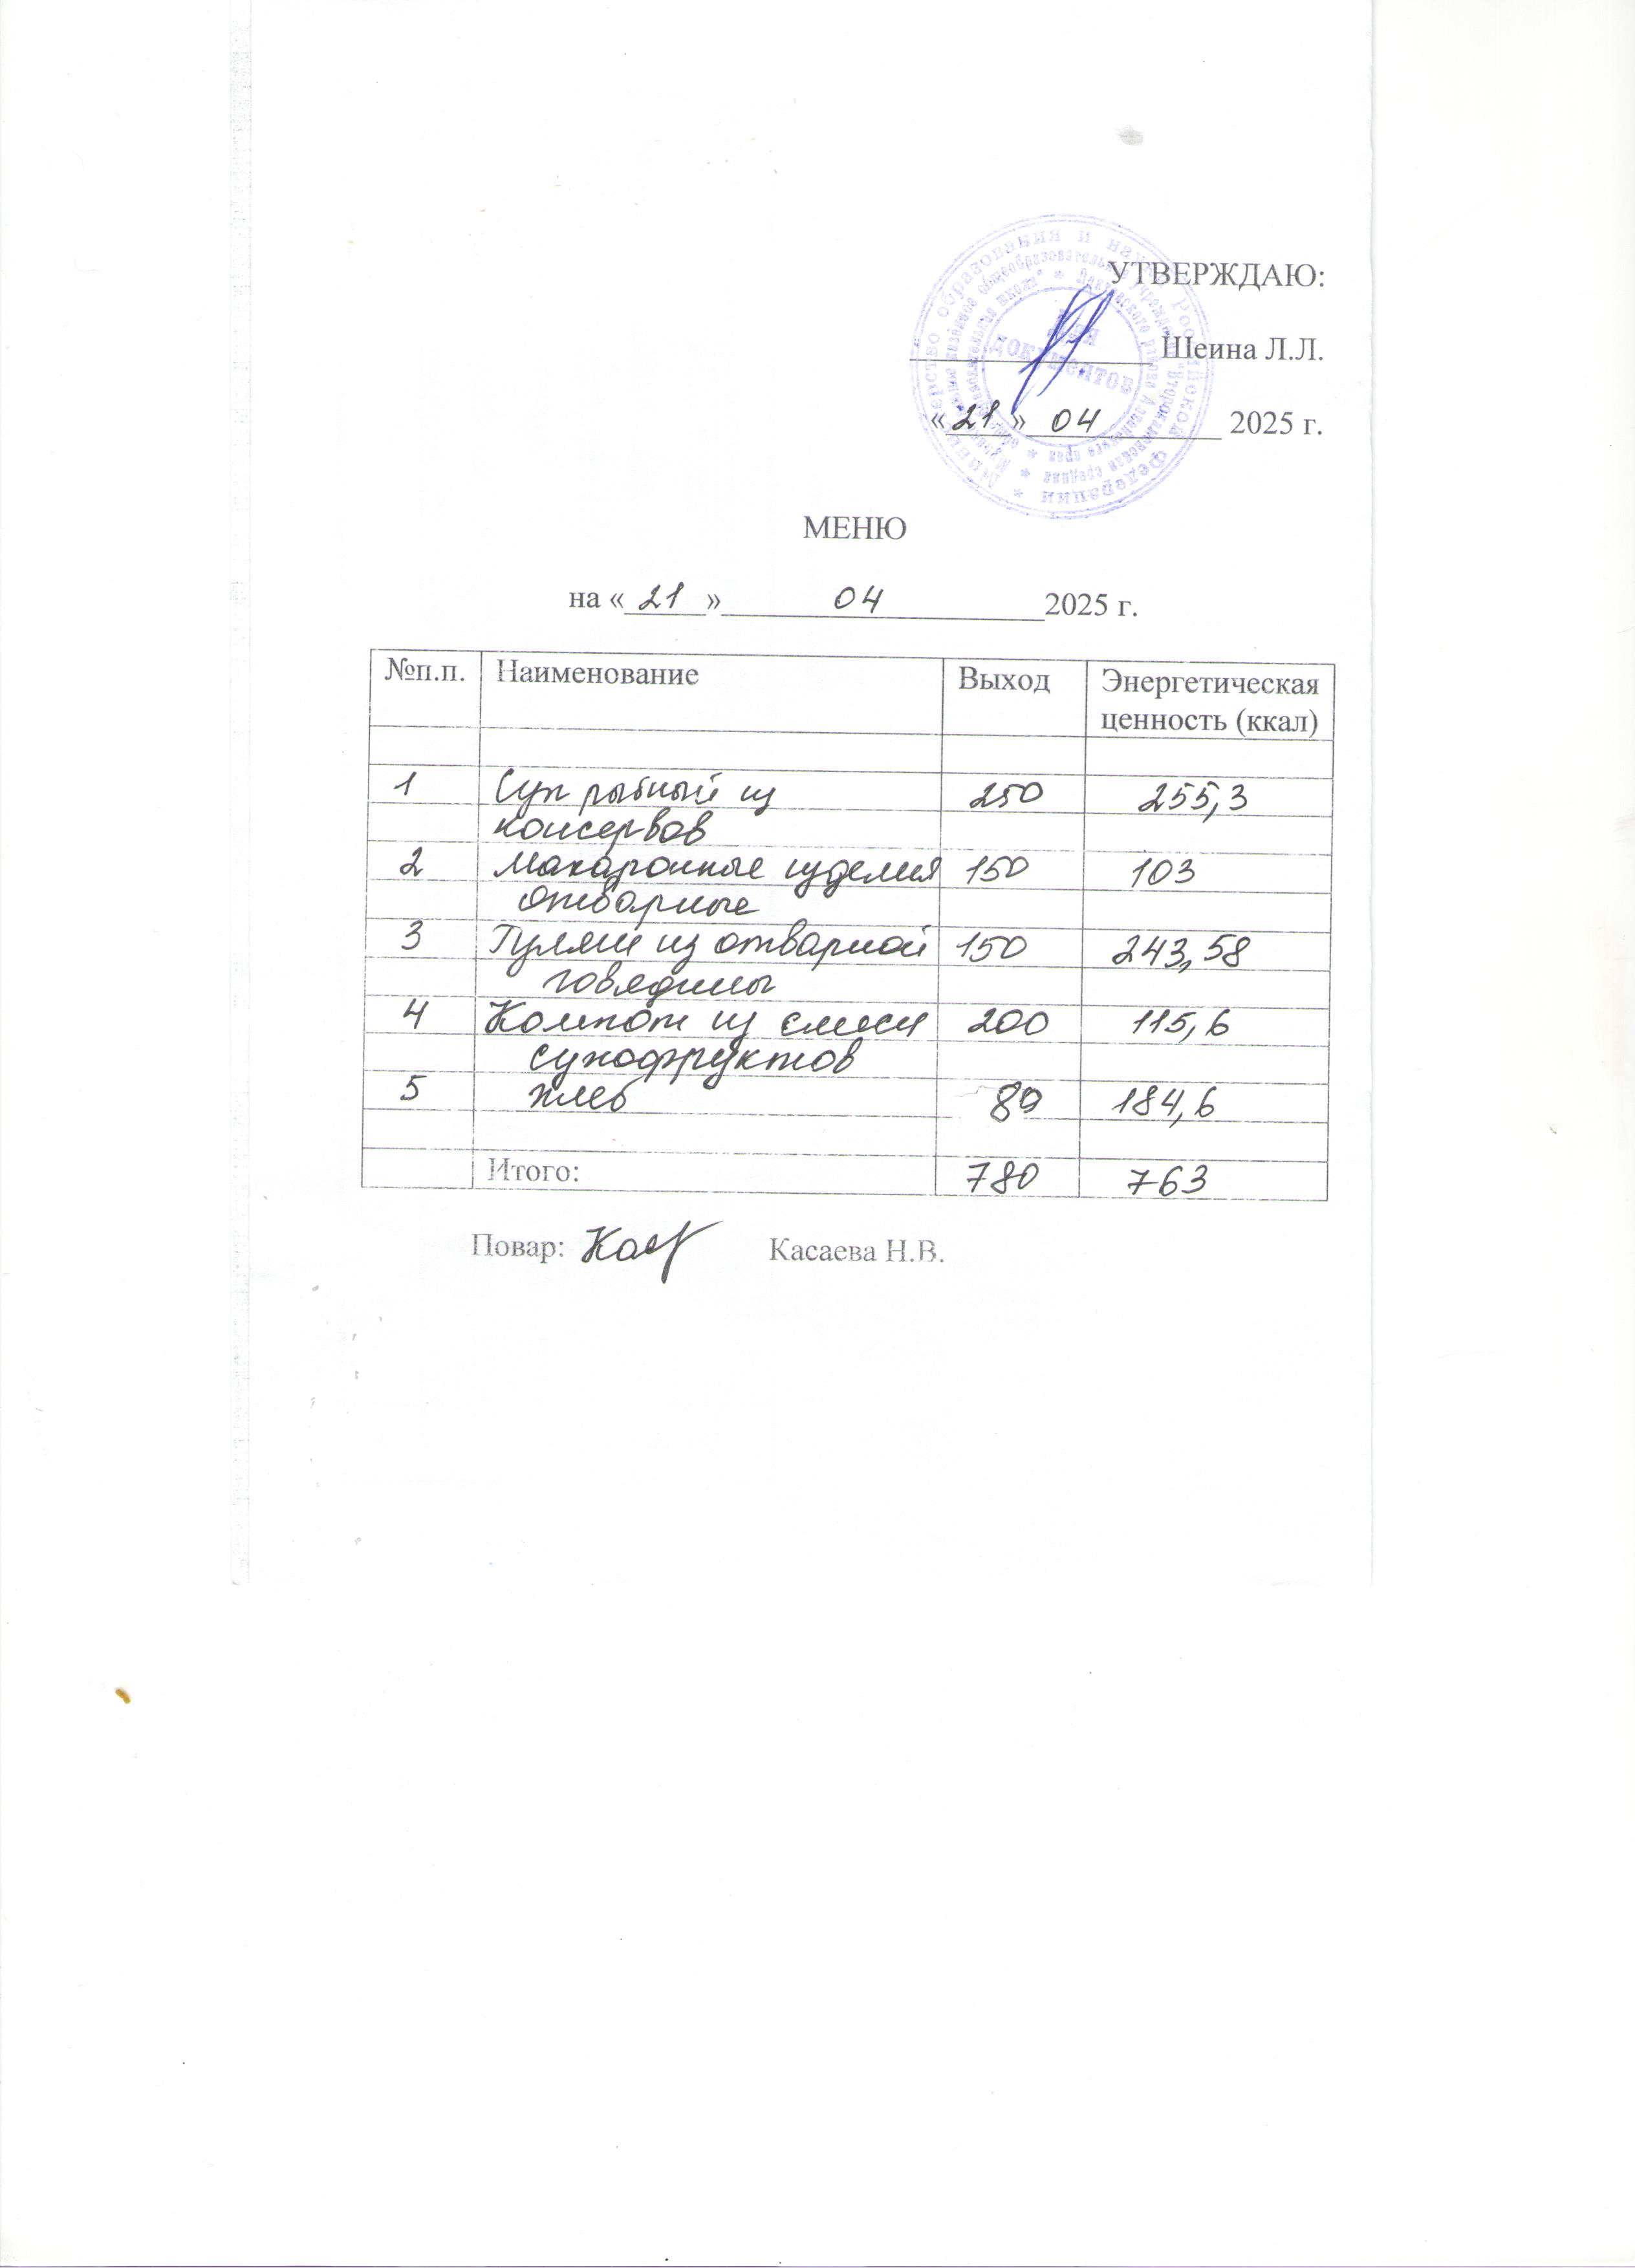 УТВЕРЖДАЮ:
Шеина Л.Л.
«21» 04 2025 г.
Министерство образования и науки Российской Федерации
Для
документов
МЕНЮ
на «21» 04 2025 г.
№п.п. Наименование Выход Энергетическая
ценность (ккал)
1 Суп рыбный из 250 255,3
консервов
2 Макаронные изделия 150 103
отварные
3 Гуляш из отварной 150 243,58
говядины
4 Компот из смеси 200 115,6
сухофруктов
5 хлеб 80 184,6
Итого: 780 763
Повар: Касаева Н.В.